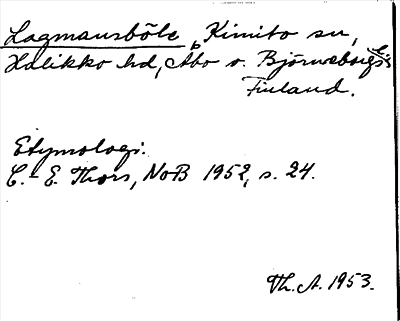 Lagmansböle, Kimito sn,
Halikko hd, Åbo o. Björneborgs l.
Finland.
Etymologi:
C.-E. Thors, NoB 1952, s. 24.
Th. A. 1953.